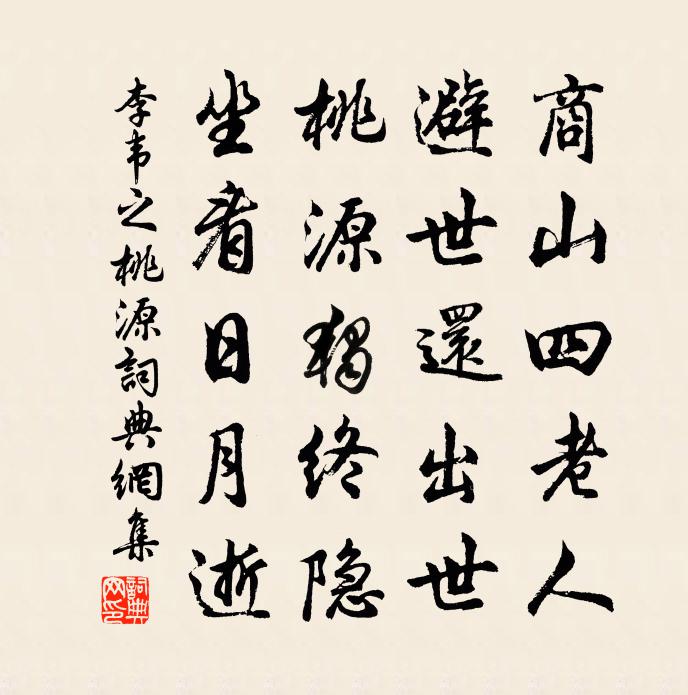 商山四老人
避世還出世
桃源獨終隐
坐看日月逝
李韦之桃源詞典網集
詞典網印